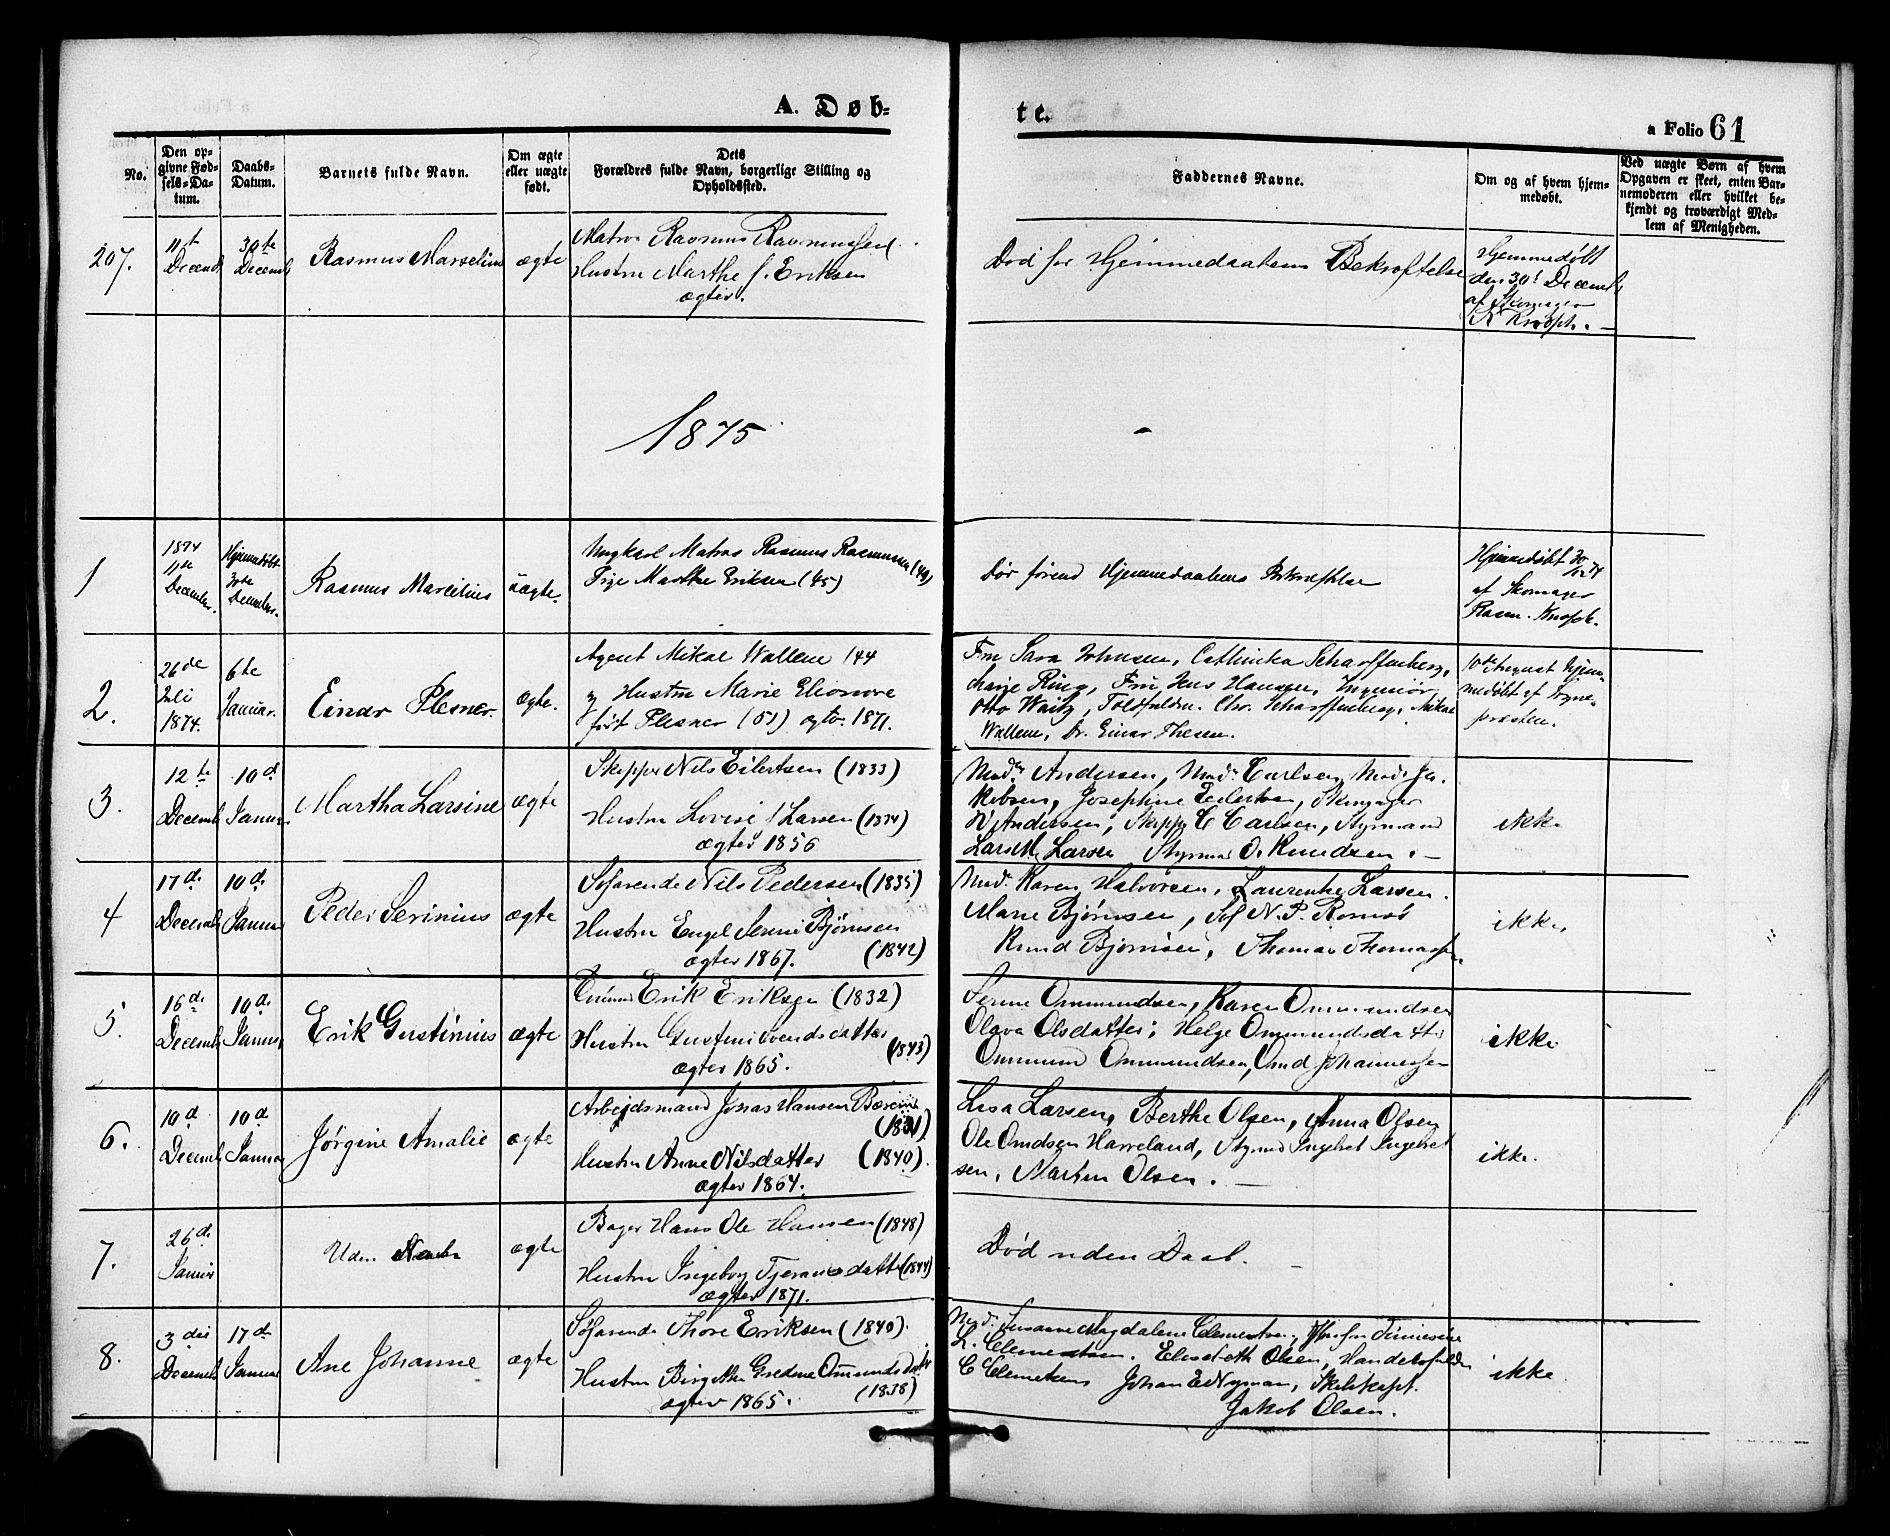 A. Døb-
te.
a Folio 61
No.
Den op-
givne Fød-
sels-Da-
tum.
Daabs-
Datum.
Barnets fulde Navn.
Om ægte
eller uægte
født.
Dets
Forældres fulde Navn, borgerlige Stilling og
Opholdssted.
Faddernes Navne.
Om og af hvem hjem-
medøbt.
Ved uægte Børn af hvem
Opgaven er skeet, enten Bar-
nemoderen eller hvilket be-
kjendt og troværdigt Med-
lem af Menigheden.
207.
11t
Decemb
30te
Decemb
Rasmus Marselius
ægte
Matros Rasmus Rasmussen
Hustru Marthe f. Eriksen
ægtev.
Død før Hjemmedaabens Bekræftelse
Hjemmedøbt
den 30t Decemb
af Skomager
R Knoph.
1875
1
1874
11te
December.
Hjemmedøbt
30te
December.
Rasmus Marcelius
uægte.
Ungkarl Matros Rasmus Rasmussen (49)
Pige Marthe Eriksen (45)
Dør førend Hjemmedaabens Bekræftelse
Hjemmedøbt 30/12 74
af Skomager
Rasm. Knoph.
2.
26de
Juli
1874.
6te
Januar.
Einar Plesner.
ægte.
Agent Mikal Wallem (44
og Hustru Marie Elionore
født Plesner (51) ægtv. 1871.
Fru Sara Johnsen, Cathinka Scharffenberg,
Marie Ring, Fru Jens Hansen, Ingeniør
Otto Waitz, Toldfuldm. Chr. Scharffenberg, Mikal
Wallem, Dr. Einar Thesen.
10de August hjem-
medøbt af Sogne-
præsten.
3.
12te
Decemb
10d
Januar
Martha Larsine
ægte
Skipper Nils Eilertsen (1833)
Hustru Lovise f Larsen (1834)
ægtev 1856
Mad. Andersen, Mad. Carlsen, Mad. Ja-
kobsen, Josephine Eilertsen, Skomager
Andersen, Skipp C Carlsen, Styrmand
Lars M. Larsen Styrmd O. Knudsen.
ikke
4
17d.
Decemb
10d.
Januar
Peder Serinius
ægte
Søfarende Nils Pedersen (1835)
Hustru Engel Serine Bjørnsen
(1842)
ægtev 1867.
Mad. Karen Halvorsen, Laurentze Larsen.
Marie Bjørnsen, Søf N. P. Romsø
Knud Bjørnsen, Thomas Thomassen.
ikke.
5.
16d.
Decemb
10d.
Januar
Erik Gustinius
ægte
Erik Eriksen (1832)
Hustru Gustine Svendsdatter
(1843)
ægtev 1865.
Serine Ommundsen, Karen Ommundsen
Olava Olsdatter, Helge Ommundsdatter
Ommund Ommundsen, Omd Johannessen
ikke
6.
10d
Decemb
10d.
Januar
Jørgine Amalie
ægte
Arbejdsmand Jonas Hansen
(1831)
Hustru Anne Nilsdatter (1840)
ægtev 1864.
Lisa Larsen, Berthe Olsen, Anna Olsen
Ole Omdsen Harreland, Styrmd Ingebret Ingebret-
sen, Martin Olsen.
ikke.
7.
26d.
Januar
Uden Navn
ægte
Bager Hans Ole Hansen (1848)
Hustru Ingeborg Tjeransdatter (1844)
ægtev 1871.
Død uden Daab.
8.
3die
Decemb
17de
Januar
Ane Johanne
ægte
Søfarende Thore Eriksen (1840).
Hustru Birgithe Gredine Omundsdatter
(1838)
ægtev 1865.
Mad. Susanne Magdalene Clementsen, Jomfru
L. Clementsen. Elisabeth Olsen, Handelsfuldm
C Clemetsen Johan E Nyman, Skibskapt.
Jakob Olsen.
ikke